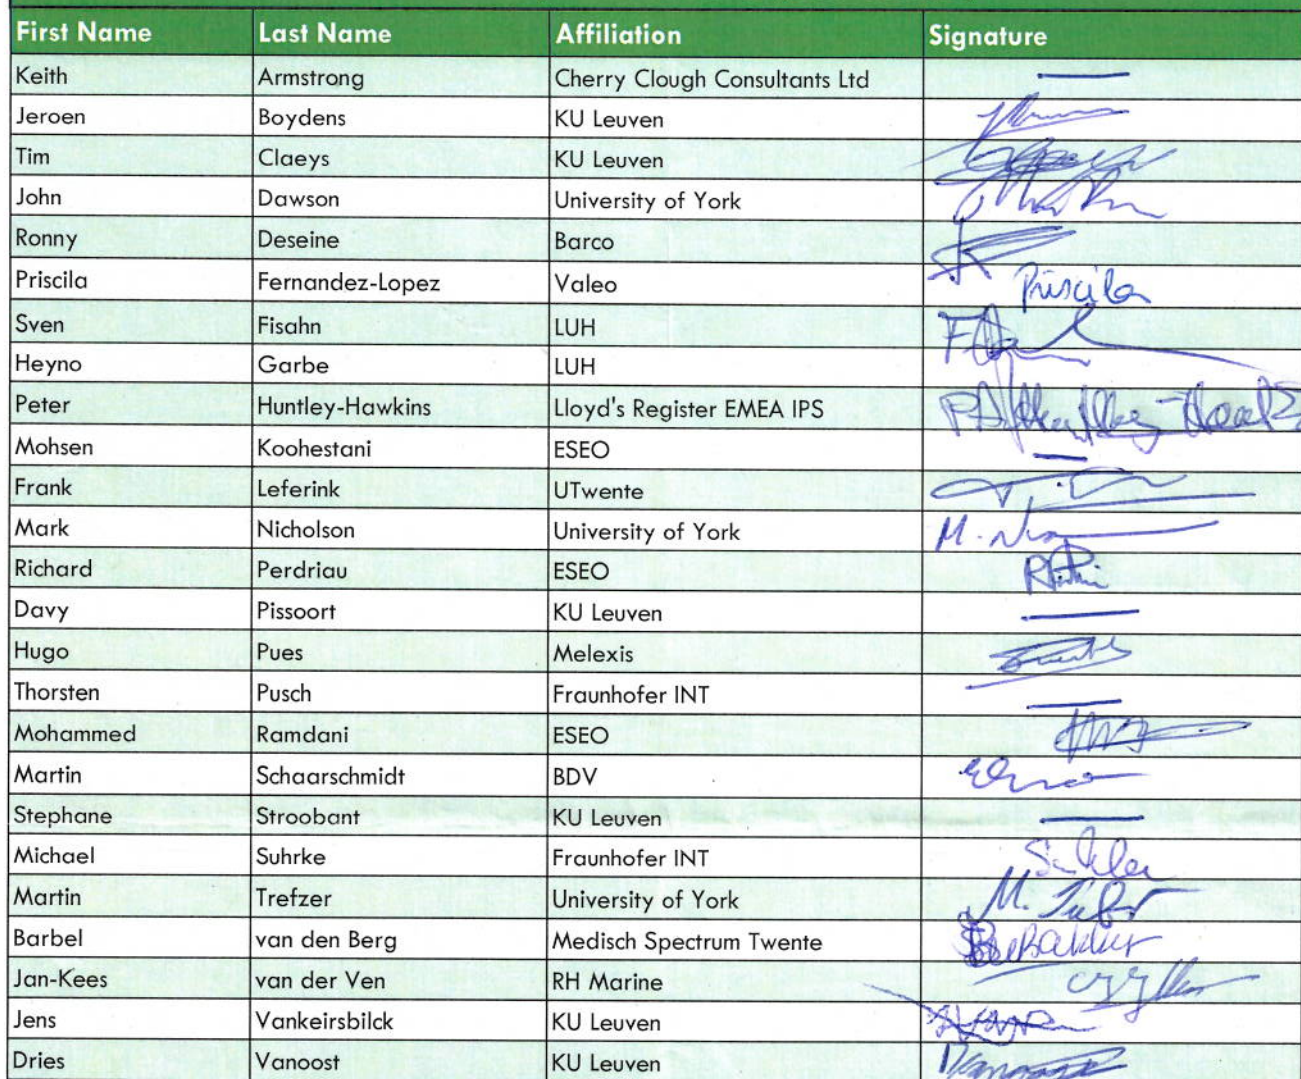 First Name Last Name Affiliation Signature
Keith Armstrong Cherry Clough Consultants Ltd
Jeroen Boydens KU Leuven
Tim Claeys KU Leuven
John Dawson University of York
Ronny Deseine Barco
Priscila Fernandez-Lopez Valeo Priscila
Sven Fisahn LUH
Heyno Garbe LUH
Peter Huntley-Hawkins Lloyd's Register EMEA IPS
Mohsen Koohestani ESEO
Frank Leferink UTwente
Mark Nicholson University of York
Richard Perdriau ESEO
Davy Pissoort KU Leuven
Hugo Pues Melexis
Thorsten Pusch Fraunhofer INT
Mohammed Ramdani ESEO
Martin Schaarschmidt BDV
Stephane Stroobant KU Leuven
Michael Suhrke Fraunhofer INT
Martin Trefzer University of York
Barbel van den Berg Medisch Spectrum Twente
Jan-Kees van der Ven RH Marine
Jens Vankeirsbilck KU Leuven
Dries Vanoost KU Leuven